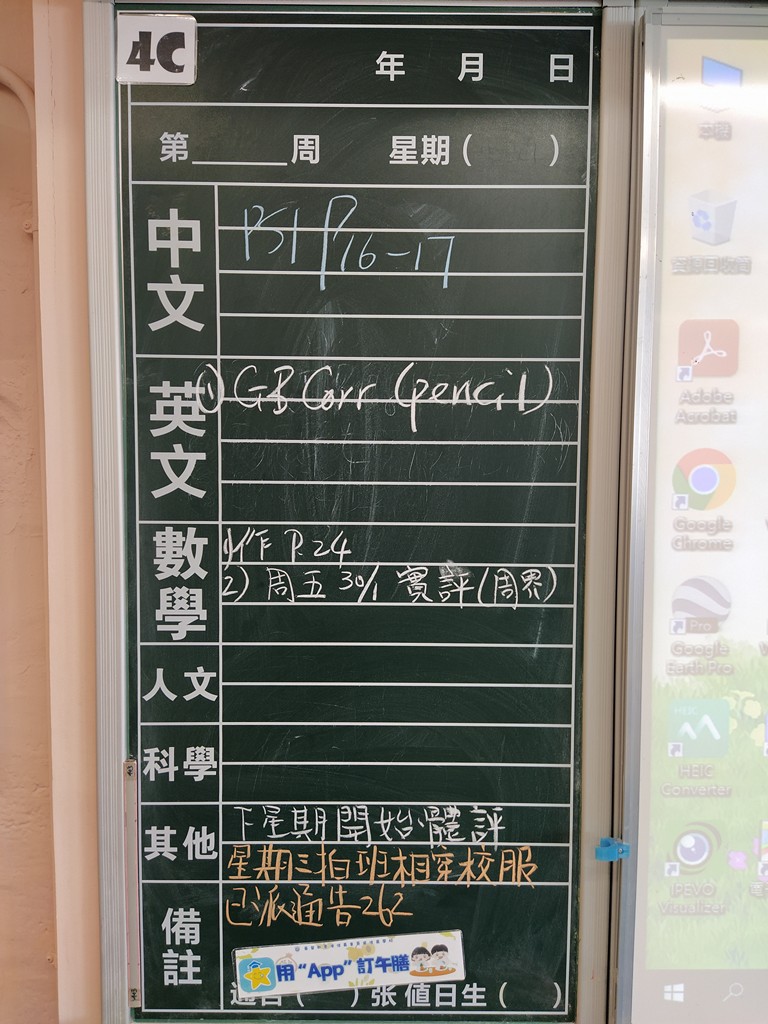 4C
年 月 日
第______周 星期( )
中文
P51 P16-17
英文
(1) GB Corr (pencil)
數學
1)作 P.24
2) 周五 30/1 實評(周界)
人文
科學
其他
下星期開始體評
星期三拍班相穿校服
備註
已派通告262
用“App”訂午膳
通告( )张 值日生( )
本機
資源回收筒
Adobe Acrobat
Google Chrome
Google Earth Pro
HEIC Converter
IPEVO Visualizer